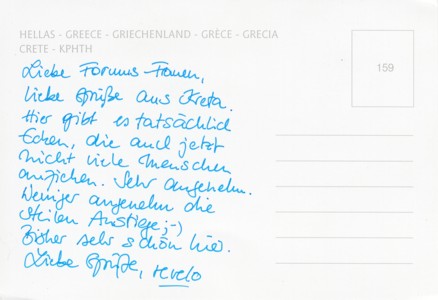 HELLAS - GREECE - GRIECHENLAND - GRÈCE - GRECIA
CRETE - ΚΡΗΤΗ
159
Liebe Forums-Frauen,
liebe Grüße aus Kreta.
Hier gibt es tatsächlich
Ecken, die auch jetzt
nicht viele Menschen
anziehen. Sehr angenehm.
Weniger angenehm die
steilen Anstiege ;-)
Bisher sehr schön hier.
Liebe Grüße, revelo